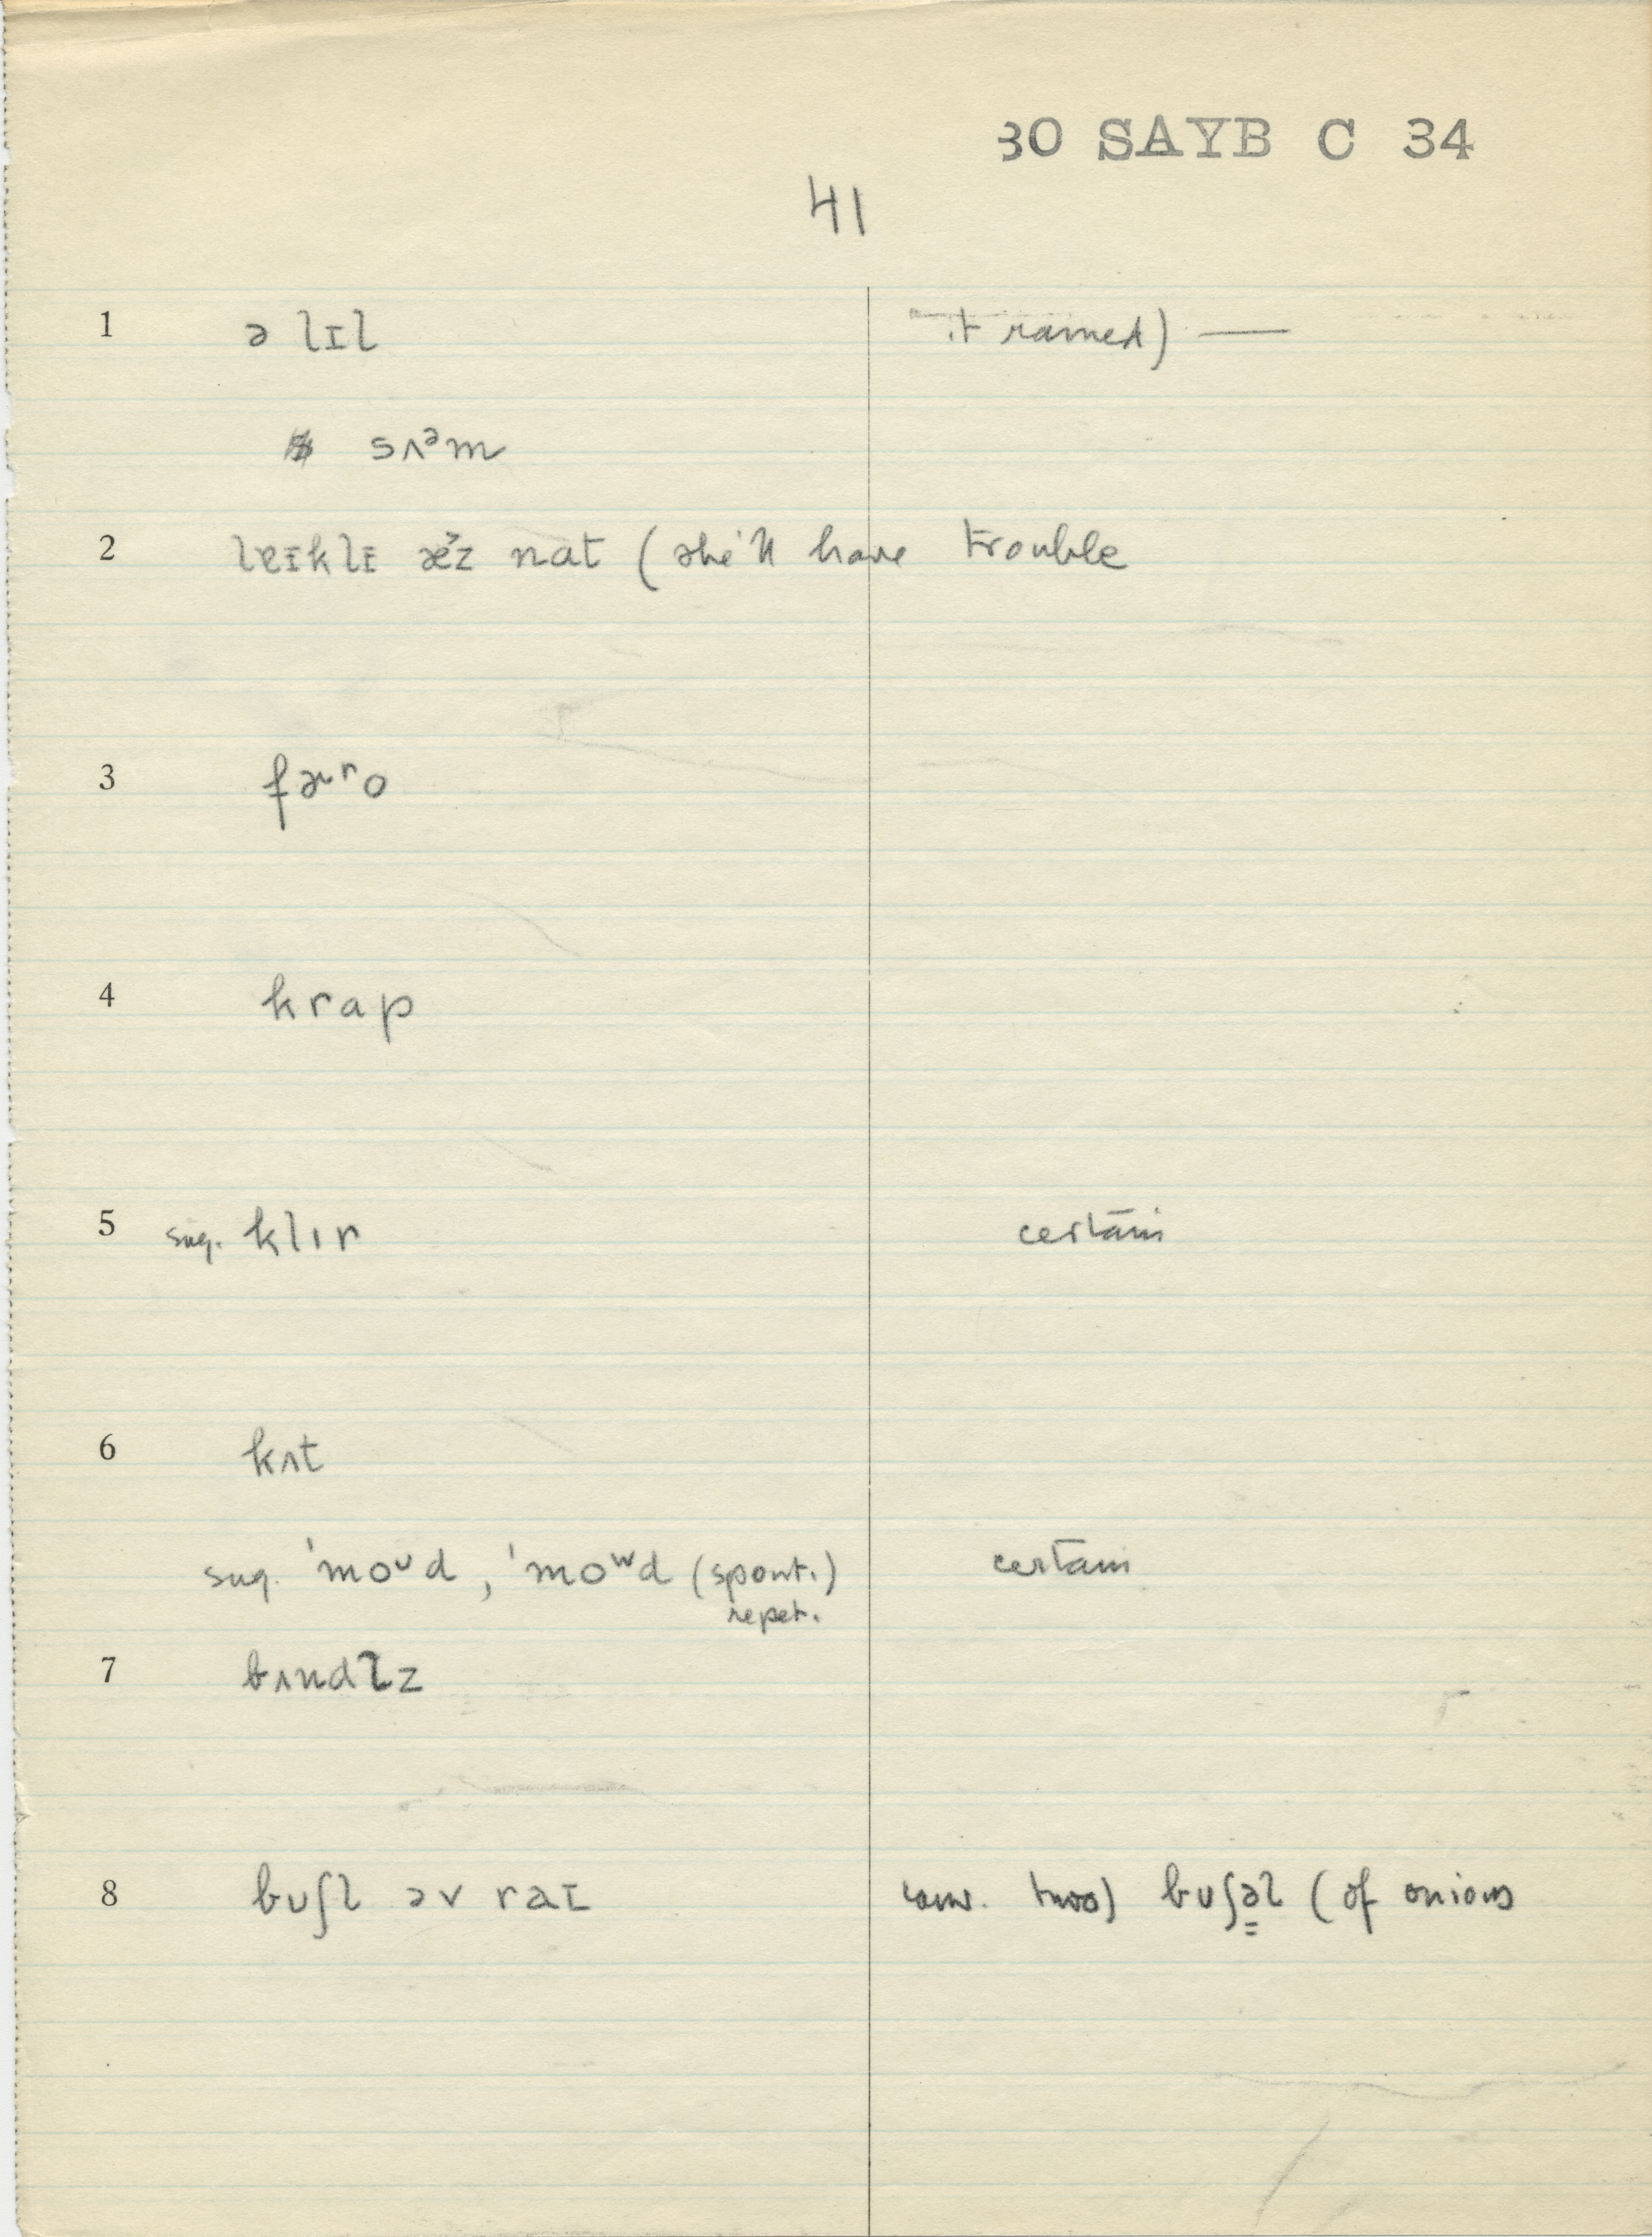 30 SAYB C 34
41
1 ə lɪl it rained) —
sʌᵊm
2 lɐɪklɪ æ˅z nat (she'll have trouble
3 fɚʳo
4 krap
5 sug. klɪr certain
6 kʌt
sug. ˈmoᴜd, ˈmoʷd (spont.) certain
repet.
7 bʌndlz
8 bᴜʃl əv raɪ conv. two) bᴜʃə̳l (of onions